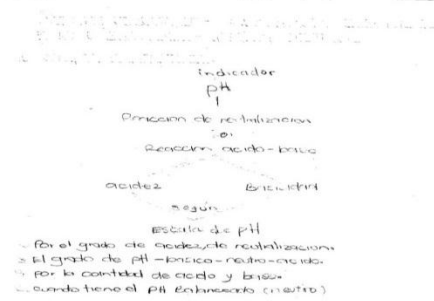 indicador
pH
Reacción de neutralización
o
Reacción acido-base
acidez
Basicidad
según
Escala de pH
- Por el grado de acidez, de neutralización.
- El grado de pH -básico-neutro-acido.
- por la cantidad de acido y base.
- cuando tiene el pH Balanceado (neutro)